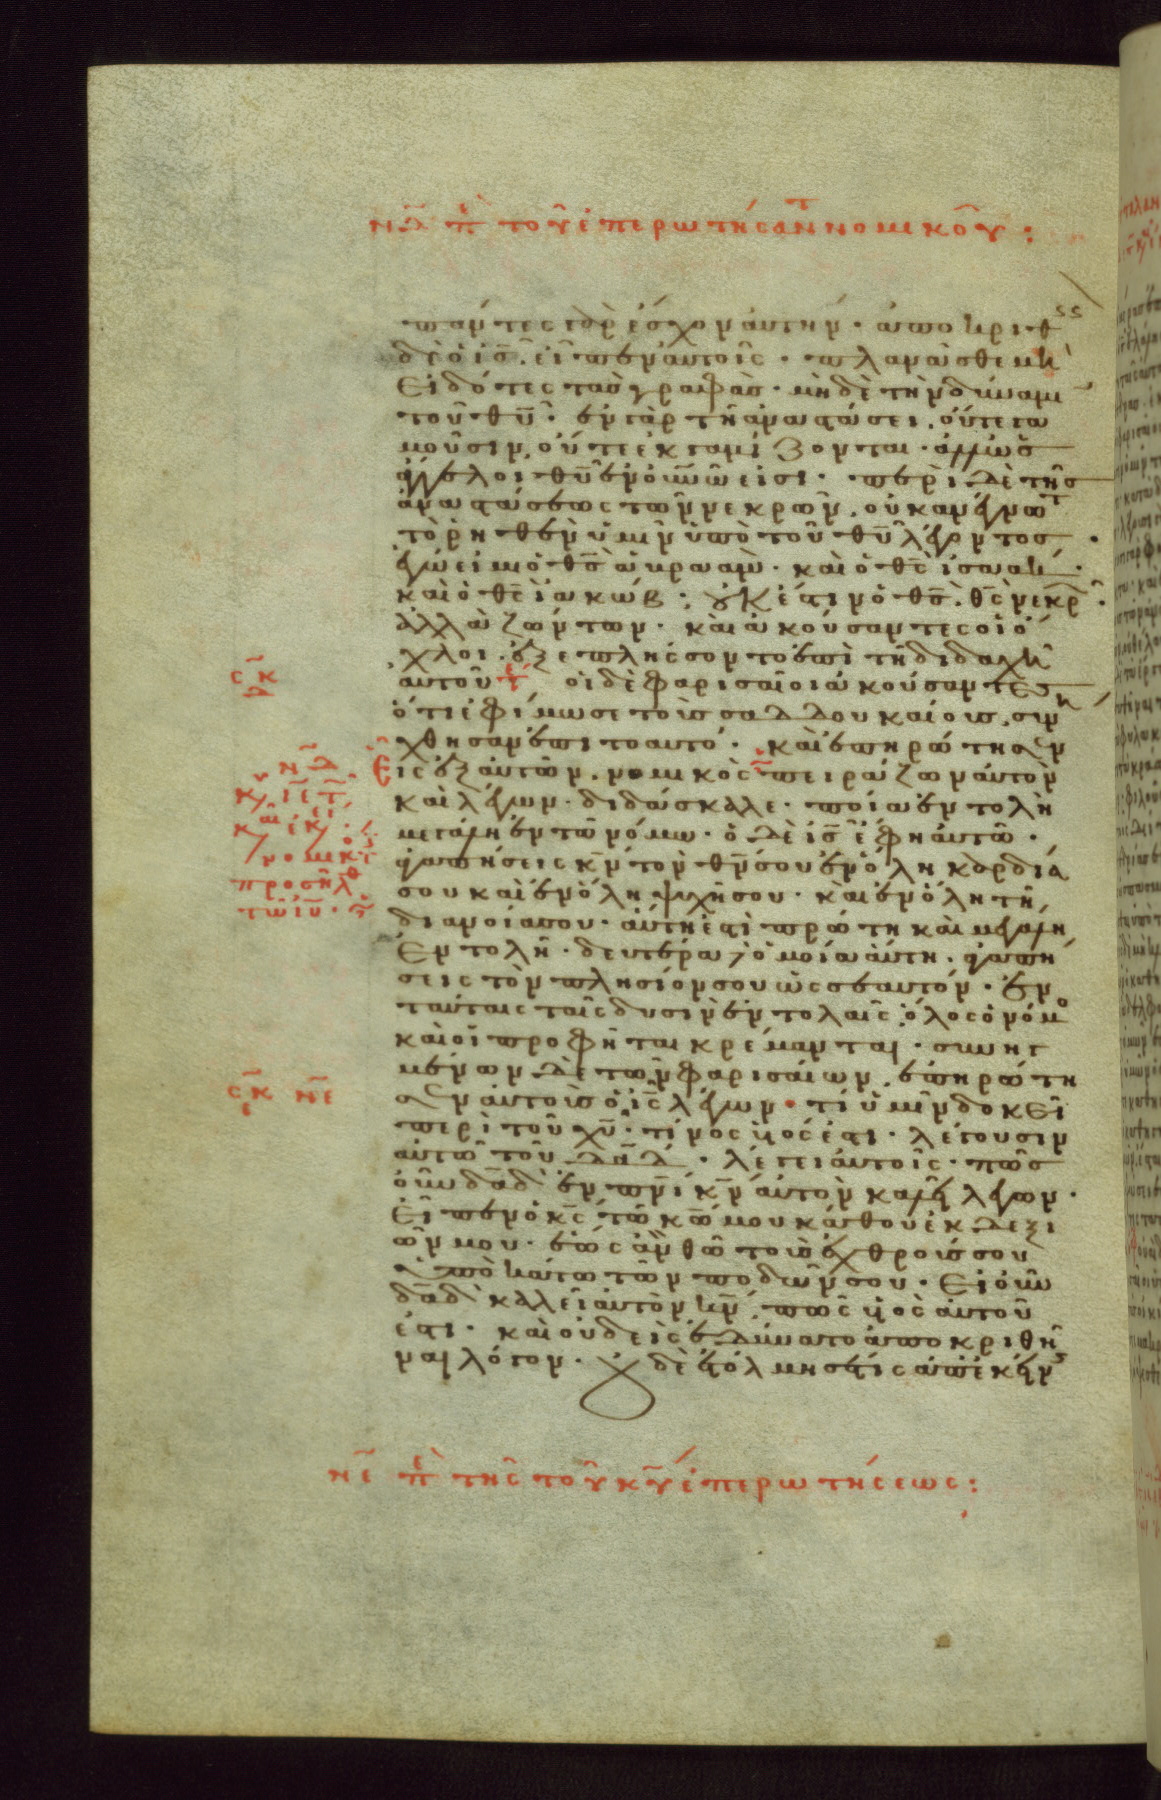 νδ πε του επερωτησαντ νομικου :
παντες γαρ έσχον αυτήν · αποκριθ
δὲ ὁ ις̅ εἶπεν αυτοῖς · πλανᾶσθε μὴ
εἰδότες τὰς γραφὰς · μηδὲ τὴν δύναμιν
τοῦ θυ̅ · ἐν γὰρ τῇ αναστάσει · ούτε γα
μοῦσιν, ούτε ἐκγαμίζονται · αλλ' ὡς
άγγελοι θυ̅ ἐν ουνω̅ εἰσι · περὶ δὲ τῆς
αναστάσεως τῶν νεκρῶν · ουκ ανέγνωτ
τὸ ρηθὲν ὑμῖν ὑπὸ τοῦ θυ̅ λέγοντος ·
ἐγώ εἰμι ὁ θς̅ αβρααμ · καὶ ὁ θς̅ ἰσαακ ·
καὶ ὁ θς̅ ἰακώβ · ουκ έστιν ὁ θς̅ θς̅ νεκρ ·
ἀλλὰ ζώντων · καὶ ακούσαντες οἱ ό
χλοι · εξεπλήσσοντο επὶ τῇ διδαχῇ
σκδ
αυτοῦ τε οἱ δὲ φαρισαῖοι ακούσαντες
ότι εφίμωσε τοὺς σαδδουκαίους, συνη
χθησαν επι το αυτό · καὶ επηρώτησεν
νδ
εἷς εξ αυτῶν · νομικὸς πειράζων αυτὸν
κυ ιε τ
καὶ λέγων · διδάσκαλε · ποία εντολὴ
κ, εκει
μεγάλη εν τῶ νόμω · ὁ δὲ ις̅ έφη αυτῶ ·
νομικ τ
αγαπήσεις κν̅ τὸν θν̅ σου εν όλη καρδία
προσηλθ
σου καὶ εν όλη ψυχῇ σου · καὶ εν όλη τῇ
τω ιυ ·
διανοία σου · αύτη εστὶ πρώτη καὶ μεγάλη
εντολή · δευτέρα ὁμοία αύτη · αγαπή
σεις τὸν πλησίον σου ὡς σεαυτόν · εν
ταύταις ταῖς δυσὶν εντολαῖς, όλος ὁ νόμο
καὶ οἱ προφῆται κρέμανται · συνηγ
μένων δὲ τῶν φαρισαίων, επηρώτη
σκε νε
σεν αυτοὺς ὁ ις̅ λέγων · τί ὑμῖν δοκεῖ
περὶ τοῦ χυ̅ · τίνος υἱός εστι · λέγουσιν
αυτῶ τοῦ δαδ̅ · λέγει αυτοῖς · πῶς
οὖν δαδ̅ εν πνι̅ κν̅ αυτὸν καλεῖ λέγων ·
εἶπεν ὁ κς̅ τῶ κω̅ μου κάθου εκ δεξι
ῶν μου · έως ὰν θῶ τοὺς εχθρούς σου
υποκάτω τῶν ποδῶν σου · ει οὖν
δαδ̅ καλεῖ αυτὸν κν̅, πῶς υἱὸς αυτοῦ
εστι · καὶ ουδεὶς εδύνατο αποκριθῆ
ναι λόγον · ουδὲ ετόλμησέ τις απ εκείν
νε πε της του κυ επερωτήσεως :